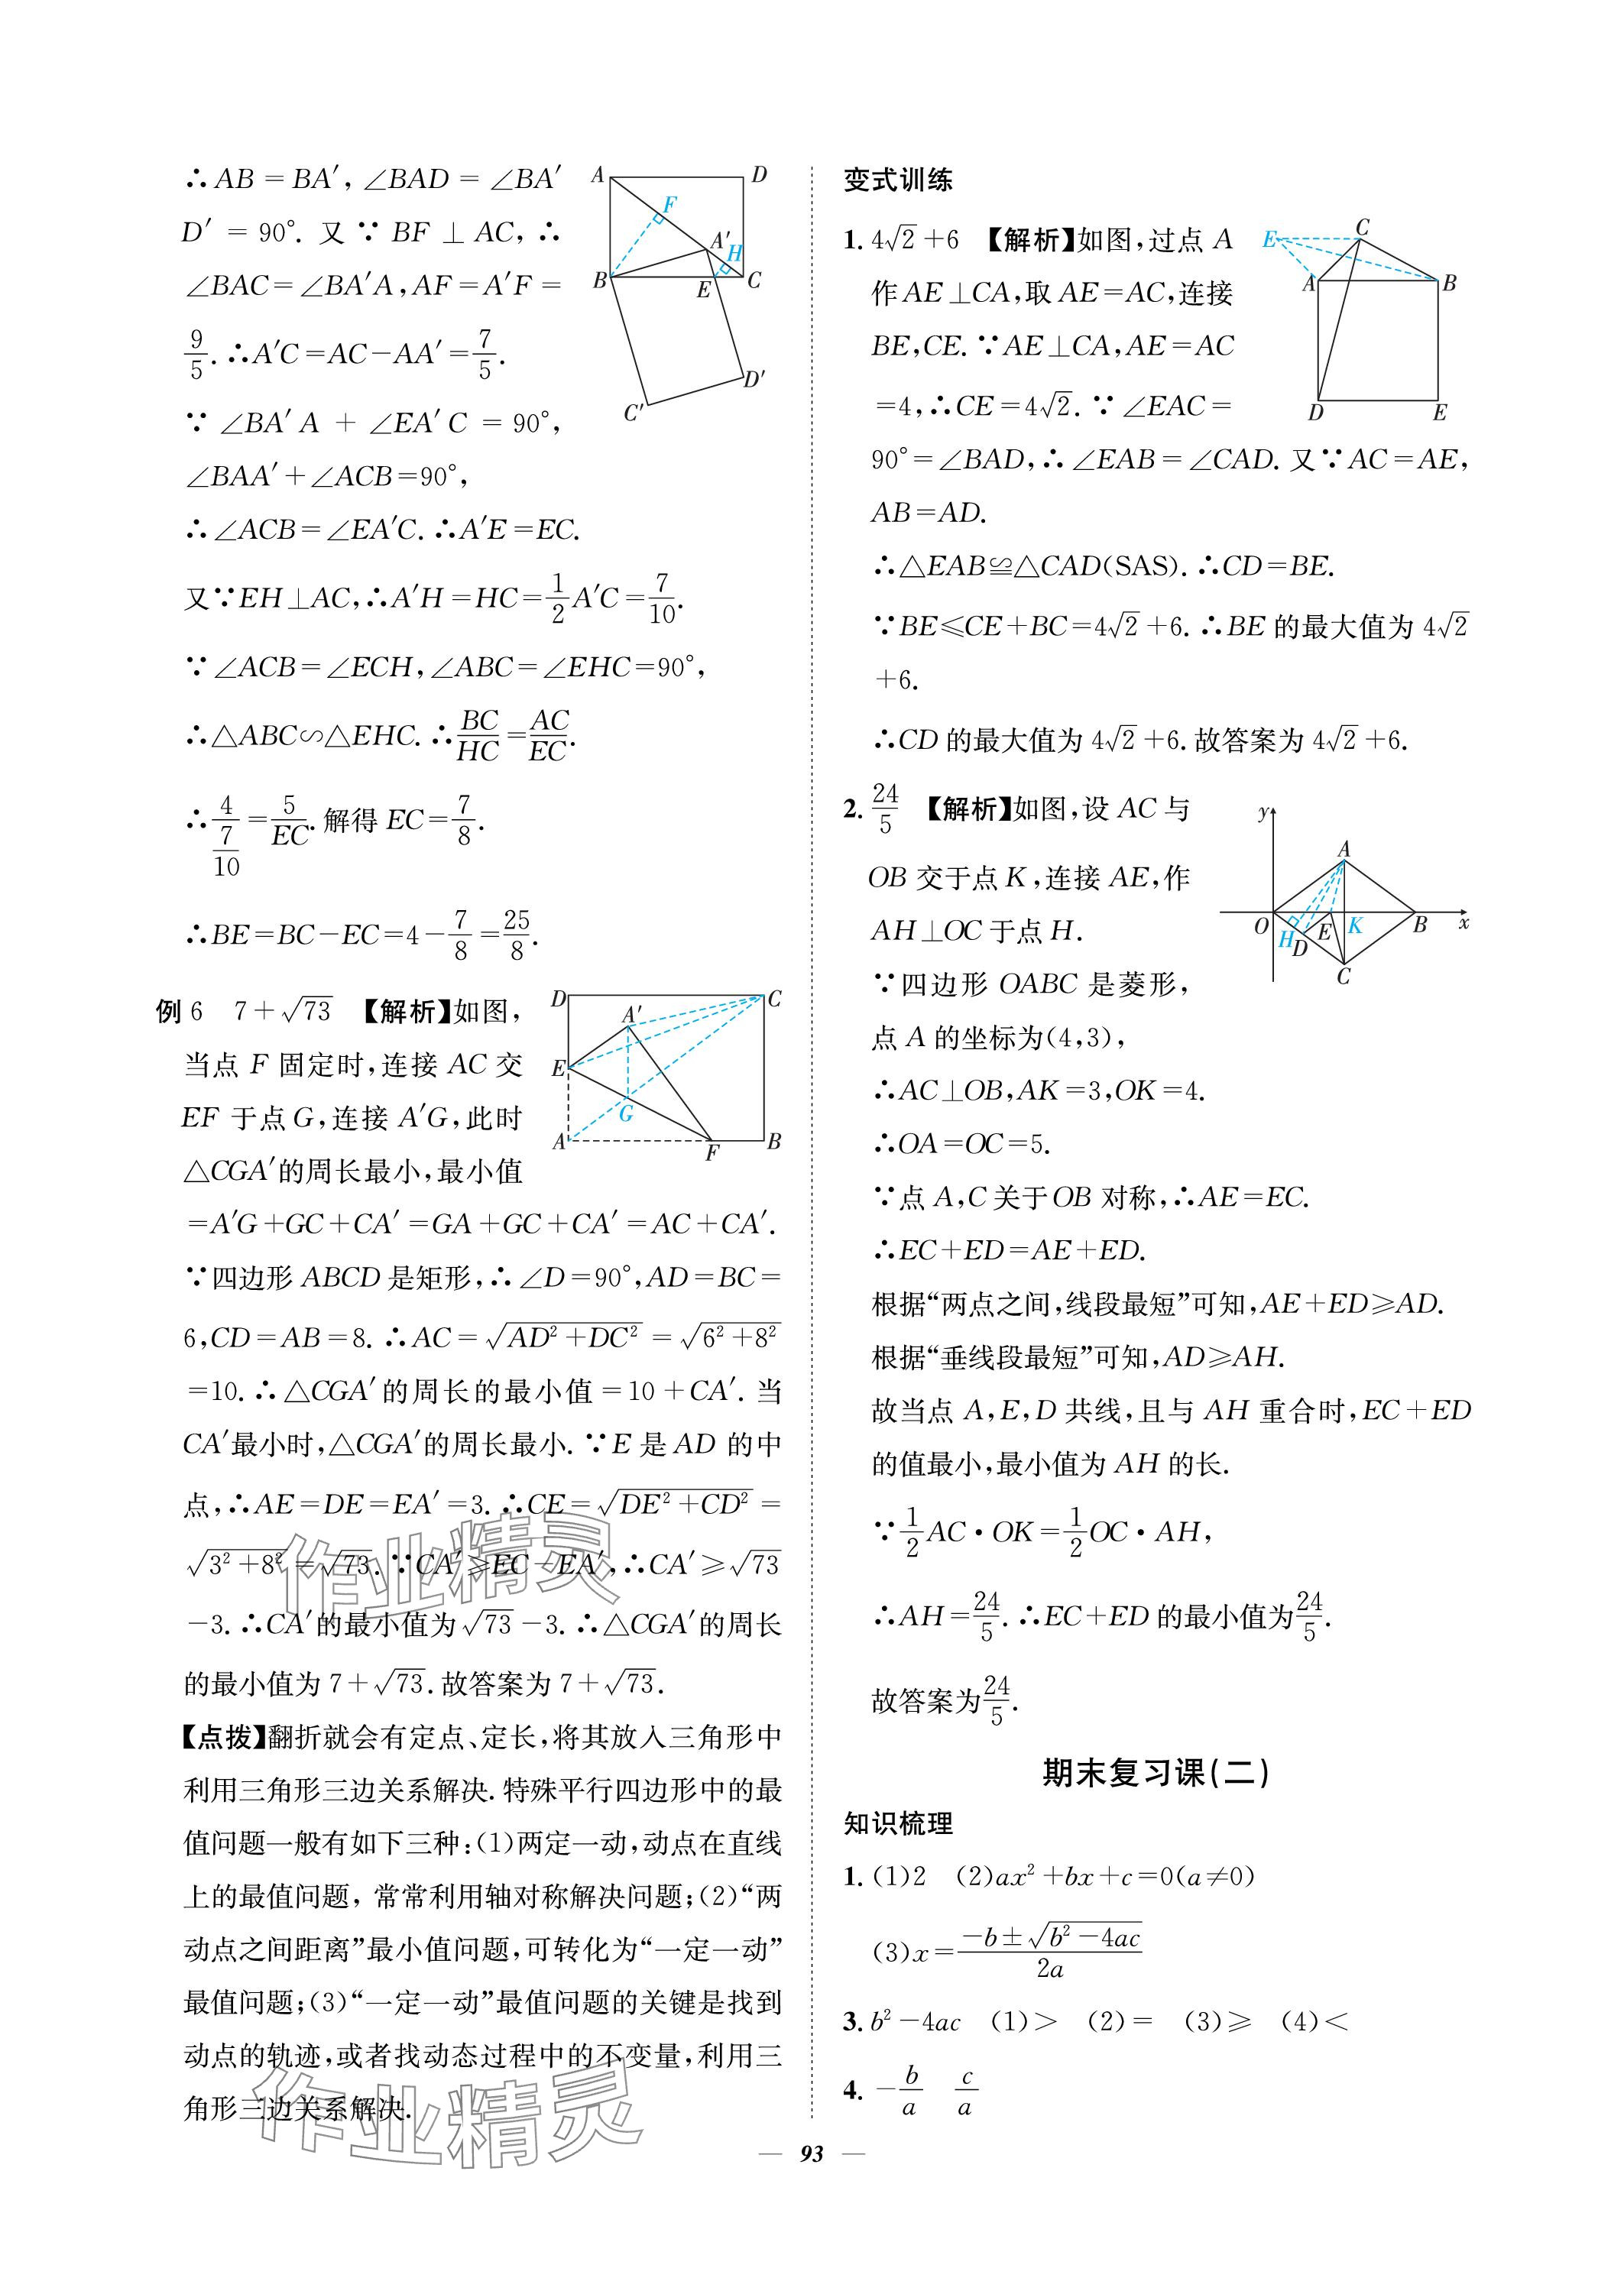 ∴AB=BA′,∠BAD=∠BA′
D′=90°.又∵BF⊥AC,∴
∠BAC=∠BA′A,AF=A′F=
9/5.∴A′C=AC-AA′=7/5.
∵∠BA′A+∠EA′C=90°,
∠BAA′+∠ACB=90°,
∴∠ACB=∠EA′C.∴A′E=EC.
又∵EH⊥AC,∴A′H=HC=1/2A′C=7/10.
∵∠ACB=∠ECH,∠ABC=∠EHC=90°,
∴△ABC∽△EHC.∴BC/HC=AC/EC.
∴4/(7/10)=5/EC.解得EC=7/8.
∴BE=BC-EC=4-7/8=25/8.
A
D
F
A′
H
B
E
C
D′
C′
例6 7+√73 【解析】如图,
当点F固定时,连接AC交
EF于点G,连接A′G,此时
△CGA′的周长最小,最小值
=A′G+GC+CA′=GA+GC+CA′=AC+CA′.
∵四边形ABCD是矩形,∴∠D=90°,AD=BC=
6,CD=AB=8.∴AC=√(AD²+DC²)=√(6²+8²)
=10.∴△CGA′的周长的最小值=10+CA′.当
CA′最小时,△CGA′的周长最小.∵E是AD的中
点,∴AE=DE=EA′=3.∴CE=√(DE²+CD²)=
√(3²+8²)=√73.∵CA′≥EC-EA′,∴CA′≥√73
-3.∴CA′的最小值为√73-3.∴△CGA′的周长
的最小值为7+√73.故答案为7+√73.
D
C
A′
E
G
A
F
B
【点拨】翻折就会有定点、定长,将其放入三角形中
利用三角形三边关系解决.特殊平行四边形中的最
值问题一般有如下三种:(1)两定一动,动点在直线
上的最值问题,常常利用轴对称解决问题;(2)“两
动点之间距离”最小值问题,可转化为“一定一动”
最值问题;(3)“一定一动”最值问题的关键是找到
动点的轨迹,或者找动态过程中的不变量,利用三
角形三边关系解决.
作业精灵
作业精灵
变式训练
1. 4√2+6 【解析】如图,过点A
作AE⊥CA,取AE=AC,连接
BE,CE.∵AE⊥CA,AE=AC
=4,∴CE=4√2.∵∠EAC=
90°=∠BAD,∴∠EAB=∠CAD.又∵AC=AE,
AB=AD.
∴△EAB≌△CAD(SAS).∴CD=BE.
∵BE≤CE+BC=4√2+6.∴BE的最大值为4√2
+6.
∴CD的最大值为4√2+6.故答案为4√2+6.
E
C
A
B
D
E
2. 24/5 【解析】如图,设AC与
OB交于点K,连接AE,作
AH⊥OC于点H.
∵四边形OABC是菱形,
点A的坐标为(4,3),
∴AC⊥OB,AK=3,OK=4.
∴OA=OC=5.
∵点A,C关于OB对称,∴AE=EC.
∴EC+ED=AE+ED.
根据“两点之间,线段最短”可知,AE+ED≥AD.
根据“垂线段最短”可知,AD≥AH.
故当点A,E,D共线,且与AH重合时,EC+ED
的值最小,最小值为AH的长.
∵1/2AC·OK=1/2OC·AH,
∴AH=24/5.∴EC+ED的最小值为24/5.
故答案为24/5.
y
A
O
H
D
E
K
B
x
C
期末复习课(二)
知识梳理
1. (1)2 (2)ax²+bx+c=0(a≠0)
(3)x=(-b±√(b²-4ac))/2a
3. b²-4ac (1)> (2)= (3)≥ (4)<
4. -b/a c/a
— 93 —